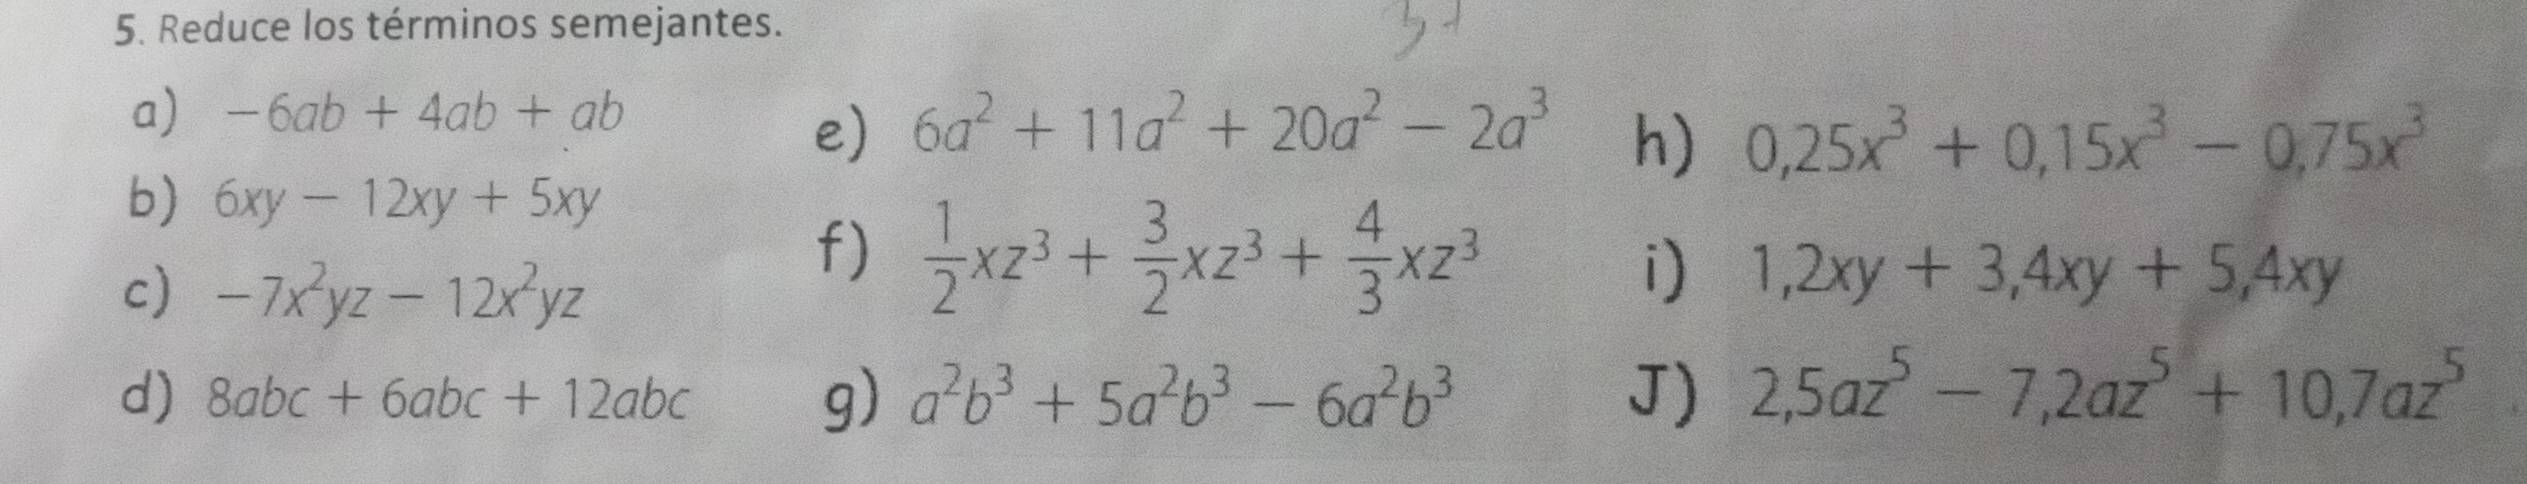 5. Reduce los términos semejantes.
a) −6ab + 4ab + ab
b) 6xy − 12xy + 5xy
c) −7x²yz − 12x²yz
d) 8abc + 6abc + 12abc
e) 6a² + 11a² + 20a² − 2a³
f) 1/2 xz³ + 3/2 xz³ + 4/3 xz³
g) a²b³ + 5a²b³ − 6a²b³
h) 0,25x³ + 0,15x³ − 0,75x³
i) 1,2xy + 3,4xy + 5,4xy
J) 2,5az⁵ − 7,2az⁵ + 10,7az⁵